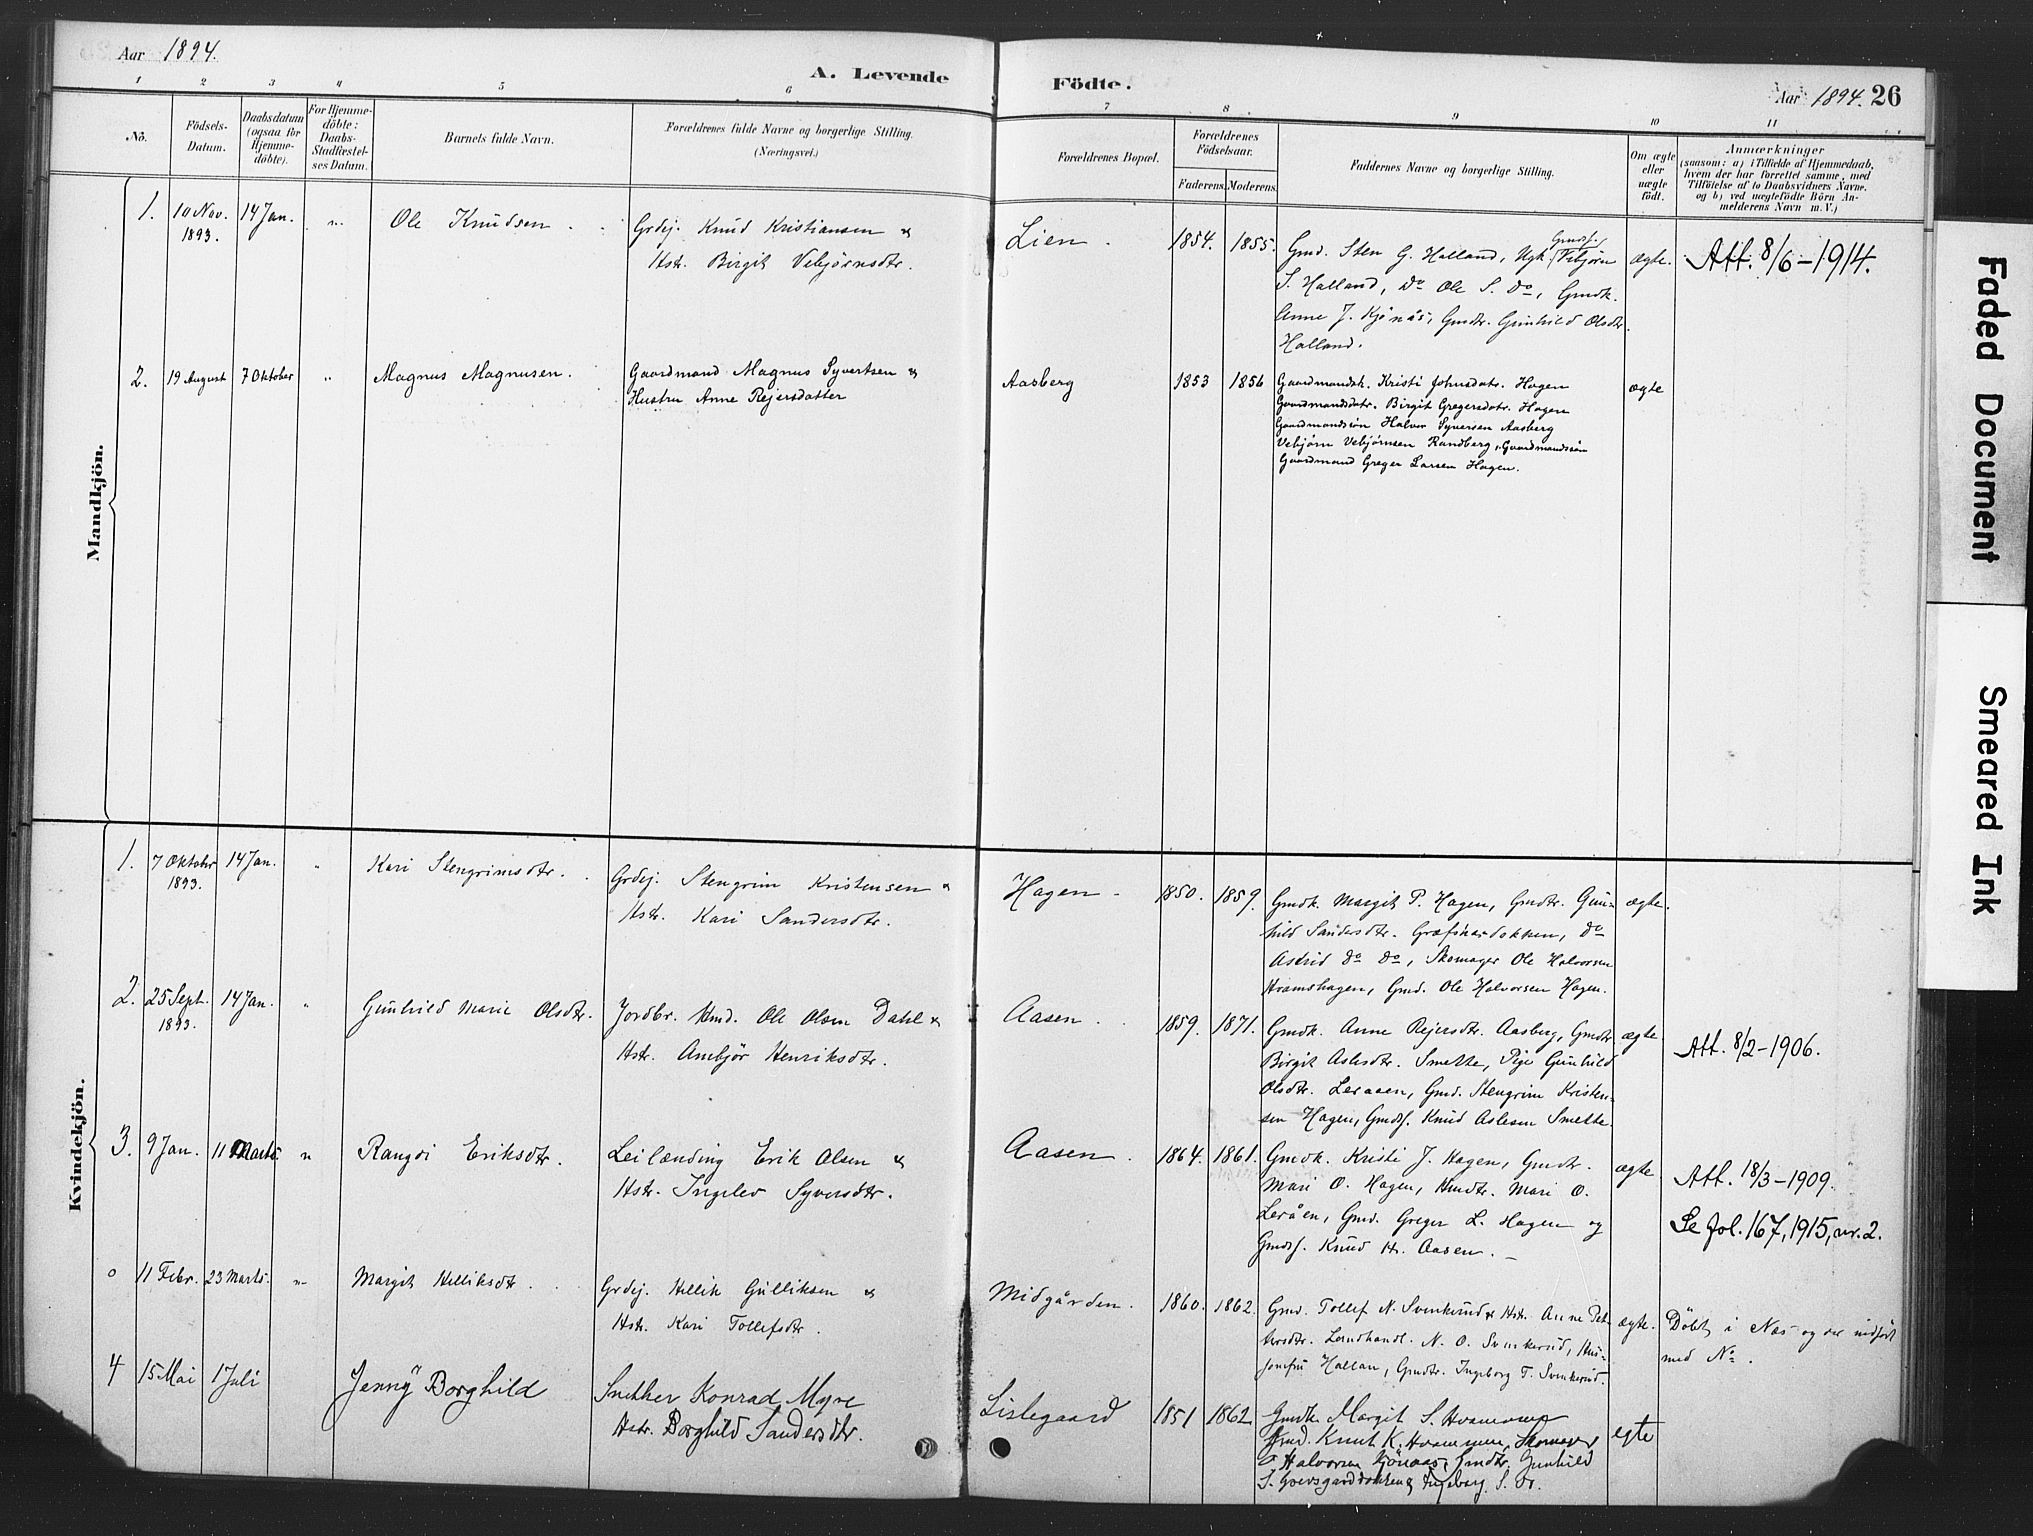 Aar 1894.
A. Levende Födte.
Aar 1894. 26
1 2 3 4 5 6 7 8 9 10 11
No.
Födsels-Datum.
Daabsdatum (ogsaa for Hjemme-döbte).
For Hjemme-döbte: Daabs-Stadfæstel-ses Datum.
Barnets fulde Navn.
Forældrenes fulde Navne og borgerlige Stilling.
(Næringsvei.)
Forældrenes Bopæl.
Forældrenes Födselsaar.
Faderens. Moderens.
Faddernes Navne og borgerlige Stilling.
Om ægte eller uægte födt.
Anmærkninger
(saasom: a) i Tilfælde af Hjemmedaab,
hvem der har forrettet samme, med
Tilföielse af to Daabsvidners Navne.
og b) ved uægtefödte Börn An-
melderens Navn m. V.)
Mandkjön.
1. 10 Nov. 1893. 14 Jan. " Ole Knudsen.
Grdej. Knud Kristiansen &
Hstr. Birgit Vebjörnsdtr.
Lien. 1854. 1855.
Gmd. Sten G. Halland, Ugk. Gmdsf. Vebjörn
S. Halland, Do Ole S. Do, Gmdk.
Anne J. Kjönås, Gmdtr. Gunhild Olsdtr.
Halland.
ægte. Att. 8/6-1914.
2. 19 August 7 Oktober " Magnus Magnusen.
Gaardmand Magnus Syvertsen &
Hustru Anne Rejersdatter
Aasberg 1853 1856
Gaardmandsk. Kristi Johnsdatr. Hagen
Gaardmandsdatr. Birgit Gregersdatr. Hagen
Gaardmandssön Halvor Syversen Aasberg
Vebjørn Vebjørnsen Randberg, Gaardmandssön
Gaardmand Greger Larsen Hagen.
ægte
Kvindekjön.
1. 7 Oktober 1893. 14 Jan. " Kari Stengrimsdtr.
Grdej. Stengrim Kristensen &
Hstr. Kari Sandersdtr.
Hagen. 1850. 1859.
Gmdk. Margit P. Hagen, Gmdtr. Gun-
hild Sandersdtr. Græfsnesdokken, do
Astrid do do, Skomager Ole Halvorsen
Hramshagen, Gmd. Ole Halvorsen Hagen.
ægte.
2. 25 Sept. 1893. 14 Jan. " Gunhild Marie Olsdtr.
Jordbr. Hmd. Ole Olsen Dahl &
Hstr. Ambjör Henriksdtr.
Aasen. 1859. 1871.
Gmdk. Anne Rejersdtr. Aasberg, Gmdtr.
Birgit Aslesdtr. Smette, Pige Gunhild
Olsdtr. Leraaen, Gmd. Stengrim Kristen-
sen Hagen, Gmdsf. Knud Aslesen Smette.
ægte. Att. 8/2-1906.
3. 9 Jan. 11 Marts " Rangdi Eriksdtr.
Leilænding Erik Olsen &
Hstr. Ingelev Syversdtr.
Aasen. 1864. 1861.
Gmdk. Kristi J. Hagen, Gmdtr.
Mari O. Hagen, Hmdtr. Mari O.
Leråen, Gmd. Greger L. Hagen og
Gmdsf. Knud H. Aasen.
ægte Att. 18/3-1909.
Se fol. 167, 1915, nr. 2.
0 11 Febr. 23 Marts. " Margit Helliksdtr.
Grdej. Hellik Gulliksen &
Hstr. Kari Tollefsdtr.
Midgården. 1860. 1862.
Gmd. Tollef N. Svenkerud & Hstr. Anne Pet-
tersdtr. Landhandl. N. O. Svenkerud, Hus-
jomfru Hallan, Gmdtr. Ingeborg T. Svenkerud.
ægte. Döbt i Næs og der indført
med No.
4 15 Mai 1 Juli Jenny Borghild
Snekker Konrad Myre
Hstr. Borghild Sandersdtr.
Lislegaard 1851 1862
Gmdk. Margit S.
Gmd. Knut K. Skomager
Halvorsen Kjönaas, Gmdtr. Gunhild
S. & Ingeborg S. do.
egte
Faded Document
Smeared Ink